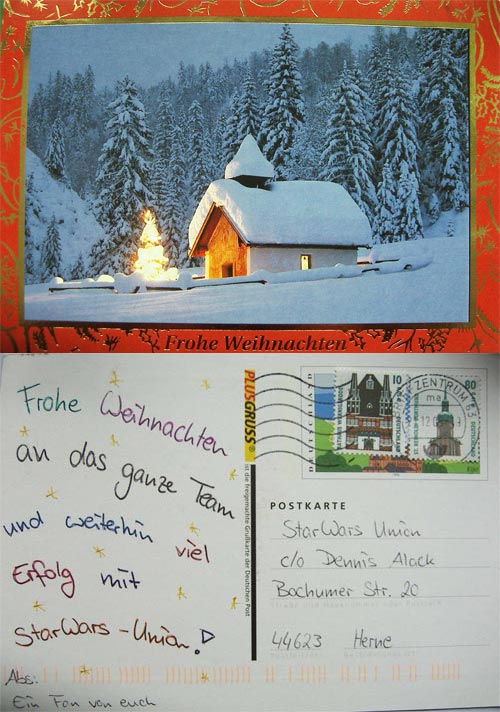 Frohe Weihnachten
Frohe Weihnachten
an das ganze Team
und weiterhin viel
Erfolg mit
StarWars-Union!
Abs:
Ein Fan von euch
PLUSGRUSS®
ist die freigemachte Grußkarte der Deutschen Post
DEUTSCHLAND
10
80
ZENTRUM 63
POSTKARTE
StarWars Union
c/o Dennis Alack
Bochumer Str. 20
Straße und Hausnummer oder Postfach
44623 Herne
Postleitzahl Bestimmungsort